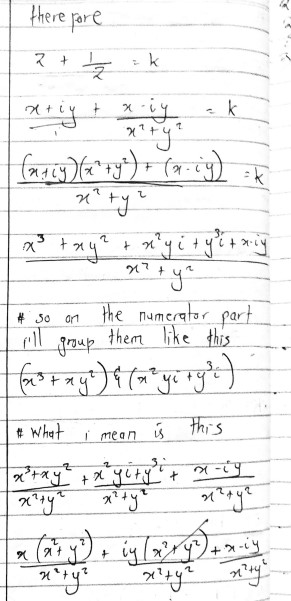 therefore
z + 1/z = k
x+iy + (x-iy)/(x²+y²) = k
((x+iy)(x²+y²) + (x-iy))/(x²+y²) = k
(x³ + xy² + x²yi + y³i + x-iy)/(x²+y²)
# so on the numerator part
i'll group them like this
(x³+xy²) & (x²yi+y³i)
# What i mean is this
(x³+xy²)/(x²+y²) + (x²yi+y³i)/(x²+y²) + (x-iy)/(x²+y²)
x(x²+y²)/(x²+y²) + iy(x²+y²)/(x²+y²) + (x-iy)/(x²+y²)